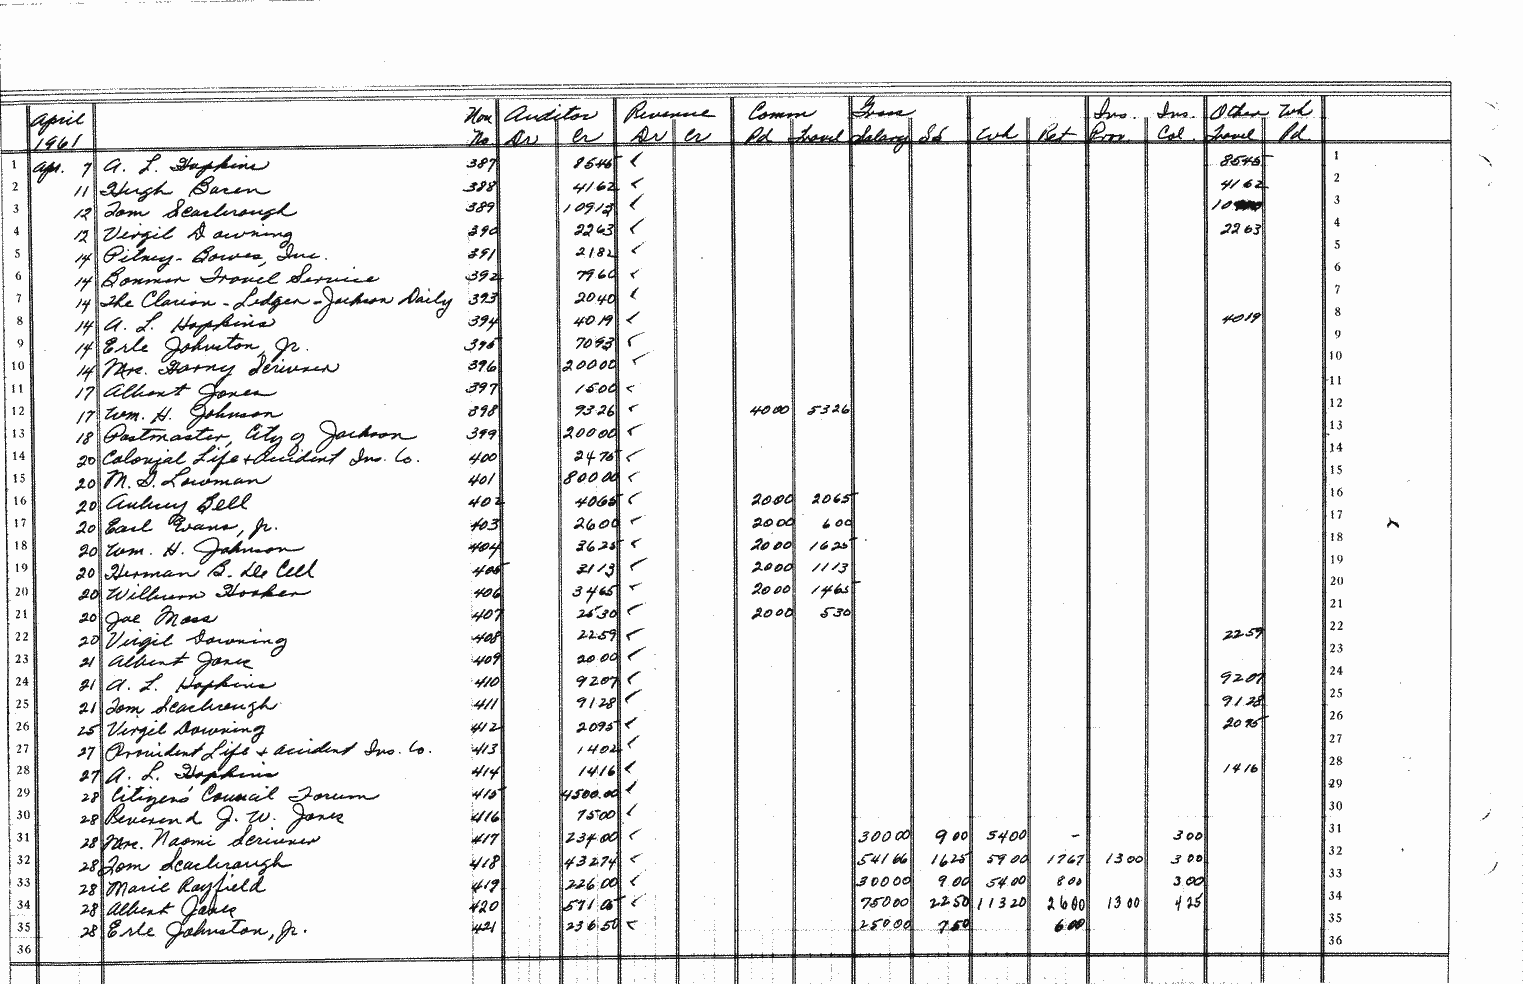 April Non Auditor Revenue Comm Gross Ins. Ins. Other Wh
1961 No Dr Cr Dr Cr Pd Travel Salary SS Wh Ret Prov. Col. Travel Pd
1 Apr. 7 A. L. Hopkins 387 8545 ✓ 8545 1
2 11 Hugh Boren 388 4162 ✓ 4162 2
3 12 Tom Scarbrough 389 10913 ✓ 3
4 12 Vergil Downing 390 2263 ✓ 2263 4
5 14 Pitney-Bowes, Inc. 391 2182 ✓ 5
6 14 Bonner Travel Service 392 7960 ✓ 6
7 14 The Clarion-Ledger-Jackson Daily 393 2040 ✓ 7
8 14 A. L. Hopkins 394 4019 ✓ 4019 8
9 14 Erle Johnston, Jr. 395 7093 ✓ 9
10 14 Mrs. Harry Scrivner 396 20000 ✓ 10
11 17 Albert Jones 397 1500 ✓ 11
12 17 Wm. H. Johnson 398 9326 ✓ 4000 5326 12
13 18 Postmaster, City of Jackson 399 20000 ✓ 13
14 20 Colonial Life & Accident Ins. Co. 400 2475 ✓ 14
15 20 M. G. Lowman 401 80000 ✓ 15
16 20 Aubrey Bell 402 4065 ✓ 2000 2065 16
17 20 Earl Evans, Jr. 403 2600 ✓ 2000 600 17
18 20 Wm. H. Johnson 404 3625 ✓ 2000 1625 18
19 20 Herman B. De Cell 405 3113 ✓ 2000 1113 19
20 20 Wilburn Hooker 406 3465 ✓ 2000 1465 20
21 20 Joe Moss 407 2530 ✓ 2000 530 21
22 20 Virgil Downing 408 2259 ✓ 2259 22
23 21 Albert Jones 409 2000 ✓ 23
24 21 A. L. Hopkins 410 9207 ✓ 9207 24
25 21 Tom Scarbrough 411 9128 ✓ 9128 25
26 25 Virgil Downing 412 2095 ✓ 2095 26
27 27 Provident Life & Accident Ins. Co. 413 1402 ✓ 27
28 27 A. L. Hopkins 414 1416 ✓ 1416 28
29 28 Citizens' Council Forum 415 4500.00 ✓ 29
30 28 Reverend J. W. Jones 416 7500 ✓ 30
31 28 Mrs. Naomi Scrivner 417 23400 ✓ 30000 900 5400 - 300 31
32 28 Tom Scarbrough 418 43274 ✓ 54166 1625 5900 1767 1300 300 32
33 28 Marie Rayfield 419 22600 ✓ 30000 900 5400 800 300 33
34 28 Albert Jones 420 57105 ✓ 75000 2250 11320 2600 1300 425 34
35 28 Erle Johnston, Jr. 421 23650 ✓ 25000 750 600 35
36 36